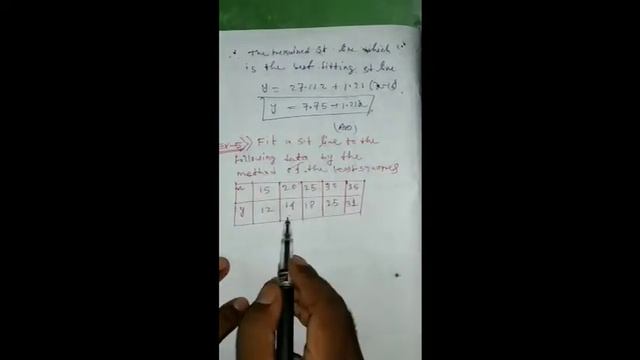 ∴ The required st line which
is the best fitting st line
y = 27.112 + 1.21 (x-16)
y = 7.75 + 1.21x
(Ans)
Ex-5 Fit a st line to the
following data by the
method of the least squares
x 15 20 25 30 35
y 12 14 18 25 31